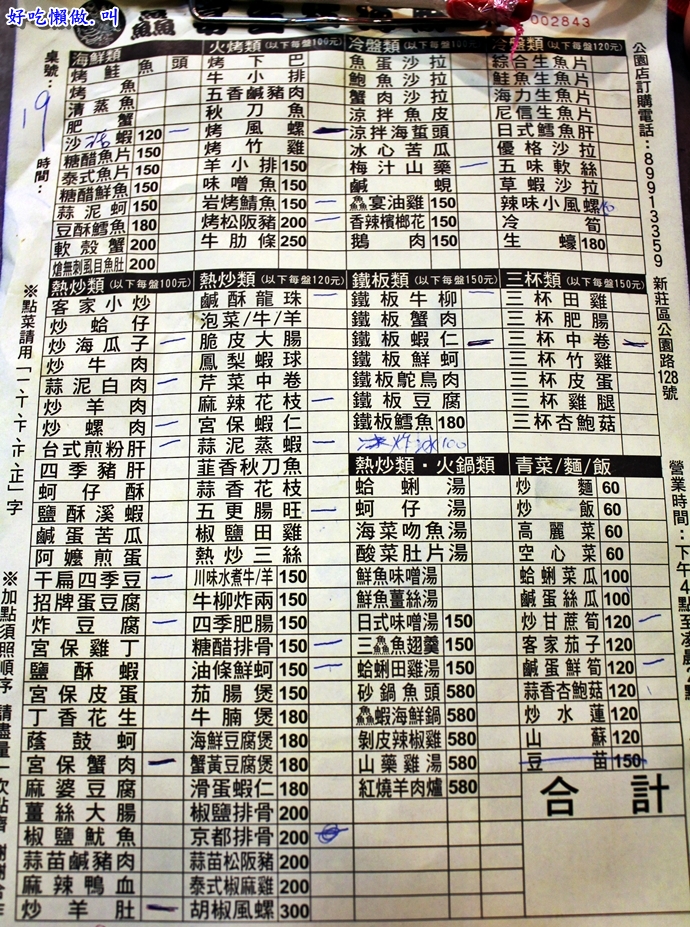 好吃懶做.叫
002843
桌號:19
時間:
海鮮類
烤鮭魚頭
烤魚
清蒸魚
肥蟹
沙蝦 120 一
糖醋魚片 150
泰式魚片 150
糖醋鮮魚 150
蒜泥蚵 150
豆酥鱈魚 180
軟殼蟹 200
熗無刺風目魚肚 200
火烤類(以下每盤100元)
烤下巴
牛小排
五香鹹豬肉
秋刀魚
烤風螺 一
烤竹雞
羊小排 150
味噌魚 150
岩烤鯖魚 150 一
烤松阪豬 200 一
牛肋條 250
冷盤類(以下每盤100元)
魚蛋沙拉
鮑魚沙拉
蟹肉沙拉
涼拌魚皮
涼拌海蜇頭
冰心苦瓜
梅汁山藥 一
鹹蜆
鱻宴油雞 150
香辣檳榔花 150
鵝肉 150
冷盤類(以下每盤120元)
綜合生魚片
鮭魚生魚片
海力生魚片
尼信生魚片
日式鱈魚肝
優格沙拉
五味軟絲
草蝦沙拉
辣味小風螺
冷筍
生蠔 180
公園店訂購電話:89913359
新莊區公園路128號
營業時間:下午4點至凌晨2點
※點菜請用「一、丅、下、正、正」字
※加點須照順序 請盡量一次點齊 謝謝合作
熱炒類(以下每盤100元)
客家小炒
炒蛤仔
炒海瓜子 一
炒牛肉
蒜泥白肉 一
炒羊肉
炒螺肉 一
台式煎粉肝 一
四季豬肝
蚵仔酥
鹽酥溪蝦
鹹蛋苦瓜
阿嬤煎蛋
干扁四季豆 一
招牌蛋豆腐
炸豆腐 一
宮保雞丁
鹽酥蝦
宮保皮蛋
丁香花生
蔭鼓蚵
宮保蟹肉 一
麻婆豆腐
薑絲大腸
椒鹽魷魚
蒜苗鹹豬肉
麻辣鴨血
炒羊肚 一
熱炒類(以下每盤120元)
鹹酥龍珠 一
泡菜/牛/羊
脆皮大腸
鳳梨蝦球
芹菜中卷
麻辣花枝 一
宮保蝦仁
蒜泥蒸蝦 一
韮香秋刀魚
蒜香花枝
五更腸旺 一
椒鹽田雞
熱炒三絲
川味水煮牛/羊 150
牛柳炸兩 150
四季肥腸 150
糖醋排骨 150 一
油條鮮蚵 150 一
茄腸煲 150
牛腩煲 180
海鮮豆腐煲 180
蟹黃豆腐煲 180
滑蛋蝦仁 180
椒鹽排骨 200
京都排骨 200
蒜苗松阪豬 200
泰式椒麻雞 200
胡椒風螺 300
鐵板類(以下每盤150元)
鐵板牛柳 一
鐵板蟹肉
鐵板蝦仁 一
鐵板鮮蚵
鐵板鴕鳥肉
鐵板豆腐
鐵板鱈魚 180
100
三杯類(以下每盤150元)
三杯田雞
三杯肥腸
三杯中卷 一
三杯竹雞
三杯皮蛋
三杯雞腿
三杯杏鮑菇
熱炒類・火鍋類
蛤蜊湯
蚵仔湯
海菜吻魚湯
酸菜肚片湯
鮮魚味噌湯
鮮魚薑絲湯
日式味噌湯 150
三鱻魚翅羹 150
蛤蜊田雞湯 150
砂鍋魚頭 580
鱻蝦海鮮鍋 580
剝皮辣椒雞 580
山藥雞湯 580
紅燒羊肉爐 580
青菜/麵/飯
炒麵 60
炒飯 60
高麗菜 60
空心菜 60
蛤蜊菜瓜 100
鹹蛋絲瓜 100
炒甘蔗筍 120 一
客家茄子 120
鹹蛋鮮筍 120 一
蒜香杏鮑菇 120
炒水蓮 120
山蘇 120
豆苗 150
合計